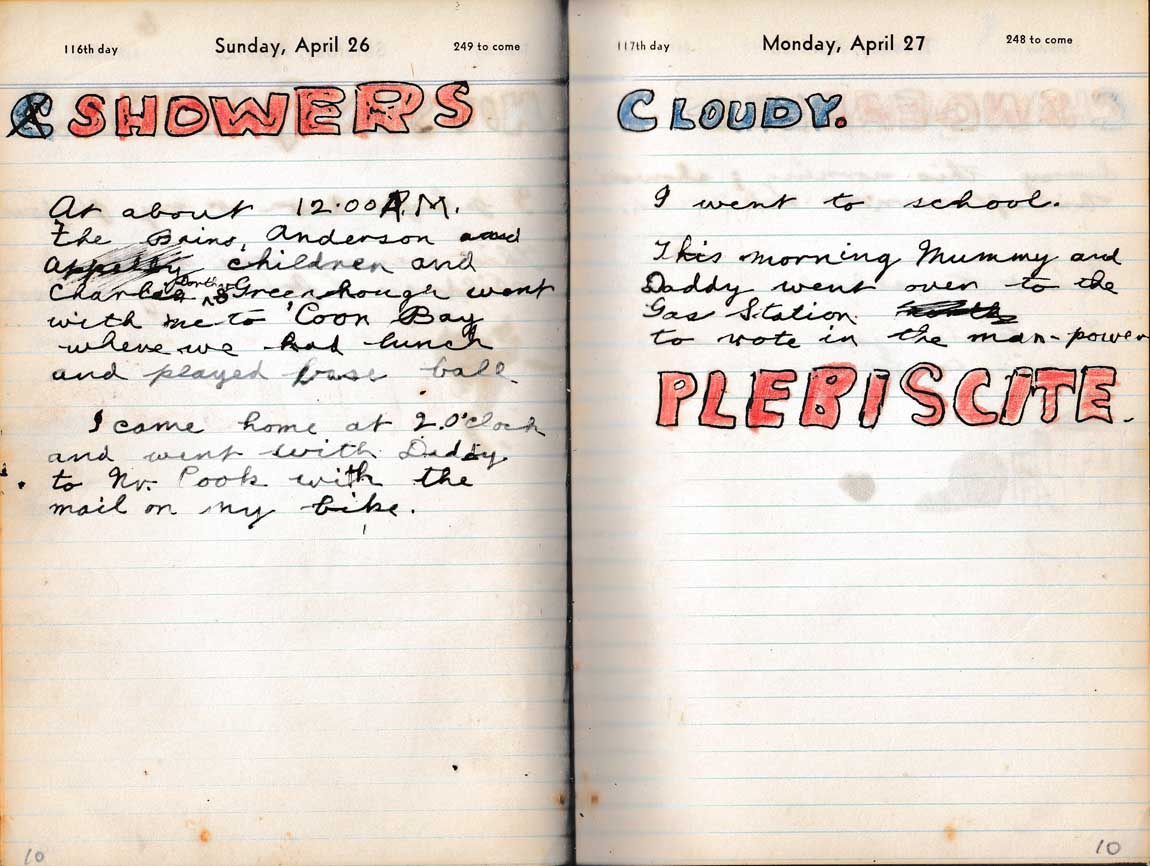 116th day Sunday, April 26 249 to come
SHOWERS
At about 12.00 P.M.
the Bains, Anderson and
children and
Charles Greenhough went
with me to 'Coon Bay
where we had lunch
and played base ball.
I came home at 2.O'clock
and went with Daddy
to Mr. Pook with the
mail on my bike.
10
117th day Monday, April 27 248 to come
CLOUDY.
I went to school.
This morning Mummy and
Daddy went over to the
Gas Station
to vote in the man-power
PLEBISCITE.
10